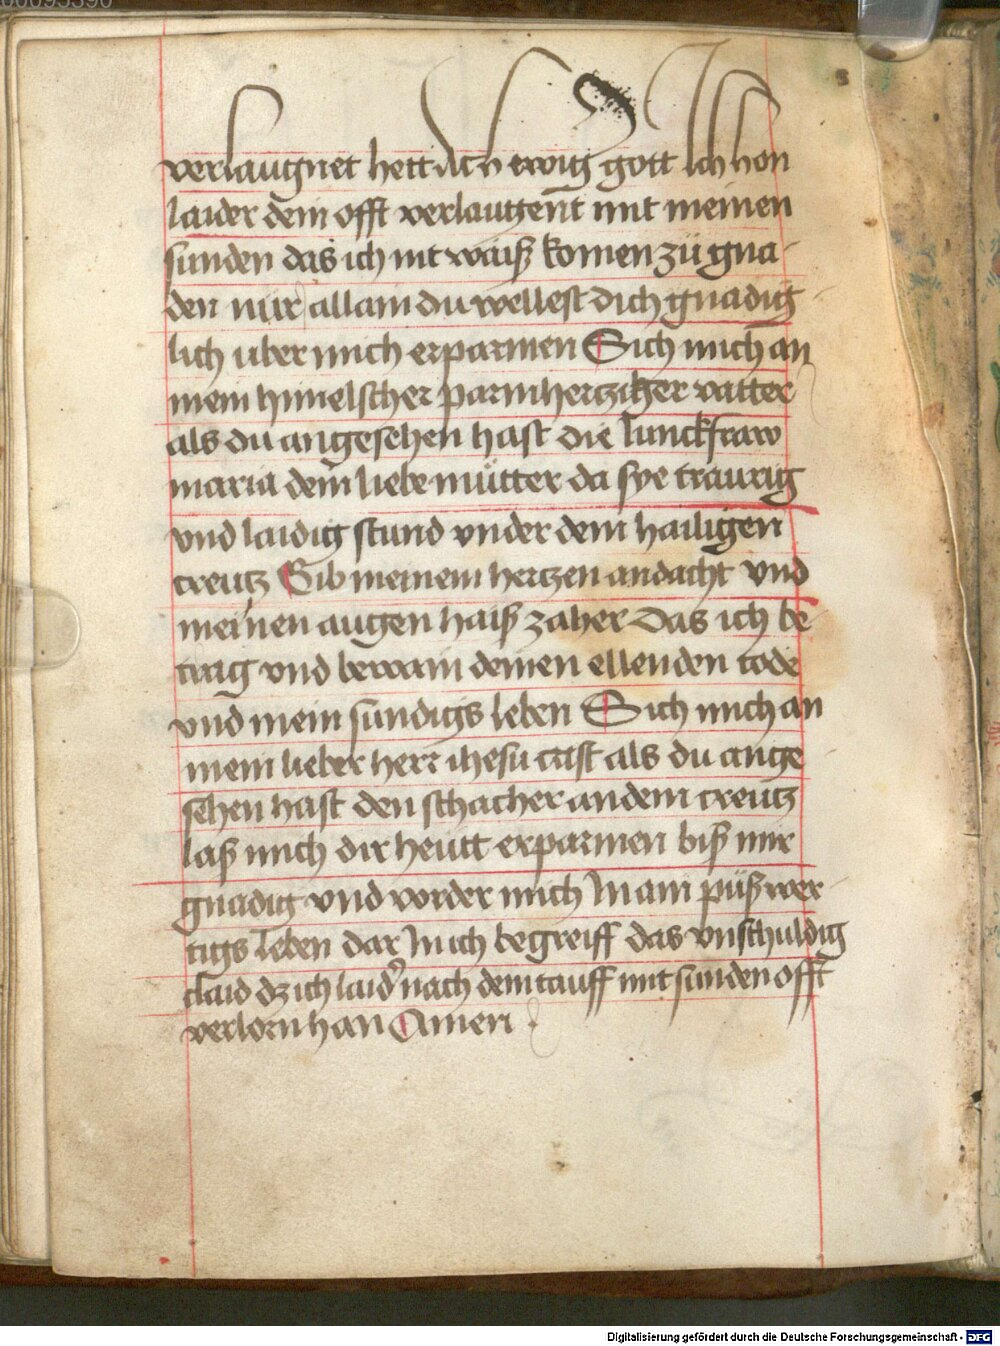 verlaugnet hett Ach ewig gott Ich hon
laider dein offt verlaugent mit meinen
sunden das ich nit waiß komen zü gna-
den nur allain du wellest dich gnadig
lich uber mich erparmen Sich mich an
mein himelscher parmhercziger vatter
als du angesehen hast die Iunckfraw
maria dein liebe mütter da sye traurig
vnd laidig stund vnder dem hailigen
creutz Gib meinem hertzen andacht vnd
meinen augen haiß zaher das ich be
trag vnd bewain deinen ellenden tode
vnd mein sundigs leben Sich mich an
mein lieber herr ihesu crist als du ange
sehen hast den schacher an dem creutz
laß mich dir heutt erparmen biß mir
gnadig vnd vorder mich In ain püßwer-
tigs leben dar In ich begreiff das vnschuldig
claid dz ich laider nach dem tauff mit sunden offt
verlorn han Amen
Digitalisierung gefördert durch die Deutsche Forschungsgemeinschaft - DFG